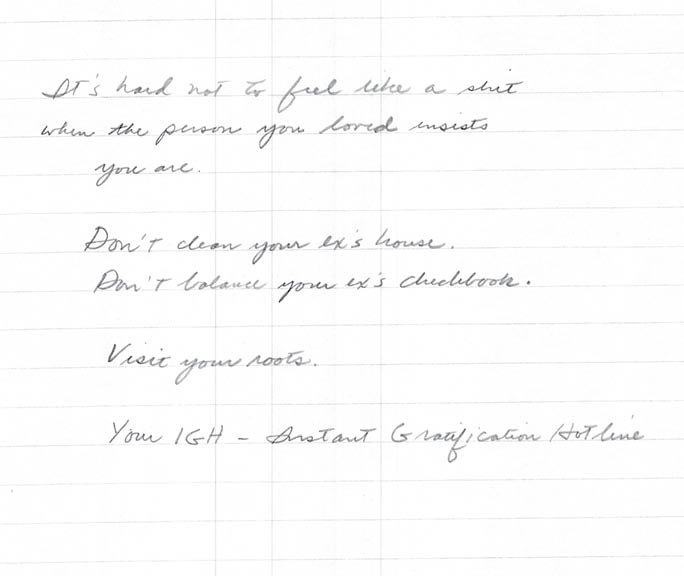 It's hard not to feel like a shit
when the person you loved insists
you are.
Don't clean your ex's house.
Don't balance your ex's checkbook.
Visit your roots.
Your IGH - Instant Gratification Hotline